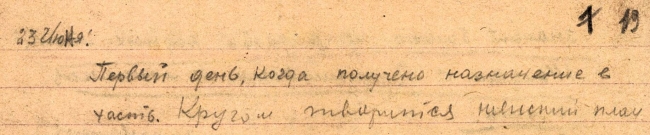 1 19
23 Июня!
Первый день, когда получено назначение в
часть. Кругом творится женский плач